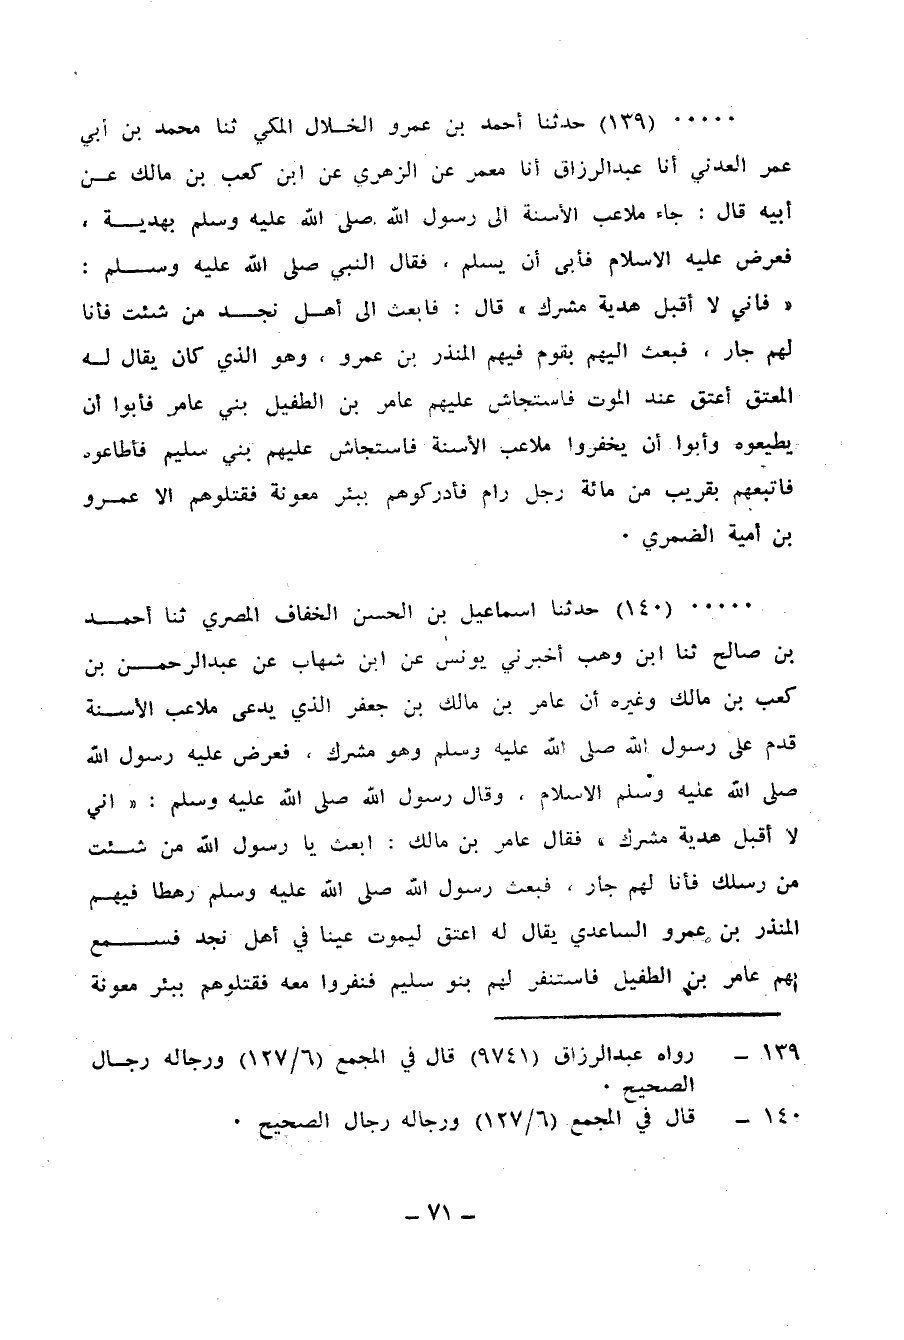 ..... (١٣٩) حدثنا أحمد بن عمرو الخلال المكي ثنا محمد بن أبي
عمر العدني أنا عبدالرزاق أنا معمر عن الزهري عن ابن كعب بن مالك عن
أبيه قال : جاء ملاعب الأسنة الى رسول الله صلى الله عليه وسلم بهدية ،
فعرض عليه الاسلام فأبى أن يسلم ، فقال النبي صلى الله عليه وسلم :
« فأني لا أقبل هدية مشرك » قال : فابعث الى أهل نجد من شئت فأنا
لهم جار ، فبعث اليهم بقوم فيهم المنذر بن عمرو ، وهو الذي كان يقال له
المعتق أعتق عند الموت فاستجاش عليهم عامر بن الطفيل بني عامر فأبوا أن
يطيعوه وأبوا أن يخفروا ملاعب الأسنة فاستجاش عليهم بني سليم فأطاعوه
فاتبعهم بقريب من مائة رجل رام فأدركوهم ببئر معونة فقتلوهم الا عمرو
بن أمية الضمري .
..... (١٤٠) حدثنا اسماعيل بن الحسن الخفاف المصري ثنا أحمد
بن صالح ثنا ابن وهب أخبرني يونس عن ابن شهاب عن عبدالرحمن بن
كعب بن مالك وغيره أن عامر بن مالك بن جعفر الذي يدعى ملاعب الأسنة
قدم على رسول الله صلى الله عليه وسلم وهو مشرك ، فعرض عليه رسول الله
صلى الله عليه وسلم الاسلام ، وقال رسول الله صلى الله عليه وسلم : « اني
لا أقبل هدية مشرك » فقال عامر بن مالك : ابعث يا رسول الله من شئت
من رسلك فأنا لهم جار ، فبعث رسول الله صلى الله عليه وسلم رهطا فيهم
المنذر بن عمرو الساعدي يقال له اعتق ليموت عينا في أهل نجد فسمع
بهم عامر بن الطفيل فاستنفر لهم بنو سليم فنفروا معه فقتلوهم ببئر معونة
١٣٩ – رواه عبدالرزاق (٩٧٤١) قال في المجمع (١٢٧/٦) ورجاله رجال
الصحيح .
١٤٠ – قال في المجمع (١٢٧/٦) ورجاله رجال الصحيح .
– ٧١ –